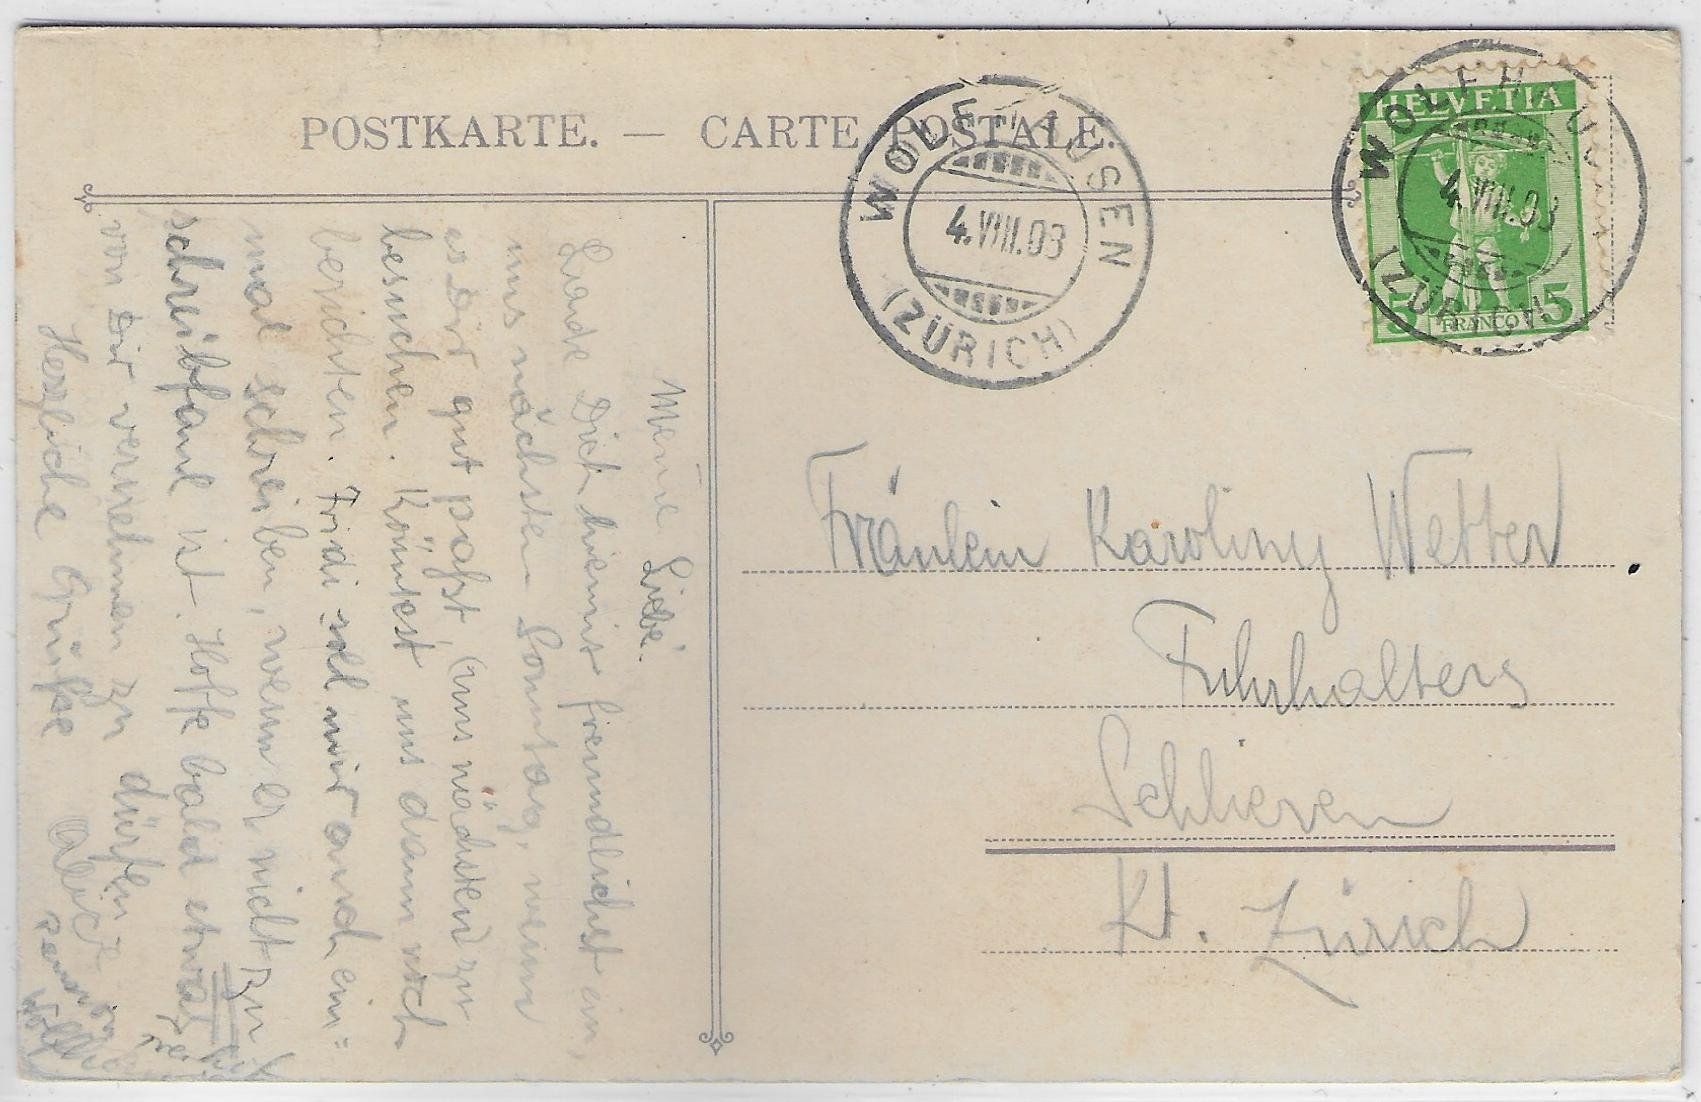 POSTKARTE. — CARTE POSTALE.
WOLFHAUSEN
4.VIII.08
(ZÜRICH)
HELVETIA
5 FRANCO 5
WOLFHAU
4.VIII.08
(ZÜRICH)
Fräulein Karoliny Wetter
Schlieren
Kt. Zürich
Meine Liebe.
Lade Dich hiemit freundlichst ein,
uns nächsten Sonntag, wenn
es Dir gut passt, (uns nächsten) zu
besuchen. Könntest uns dann noch
berichten. Fridi soll mir auch ein=
mal schreiben, wenn er nicht zu
schreibfaul ist. Hoffe bald etwas
von Dir vernehmen zu dürfen
Herzliche Grüsse